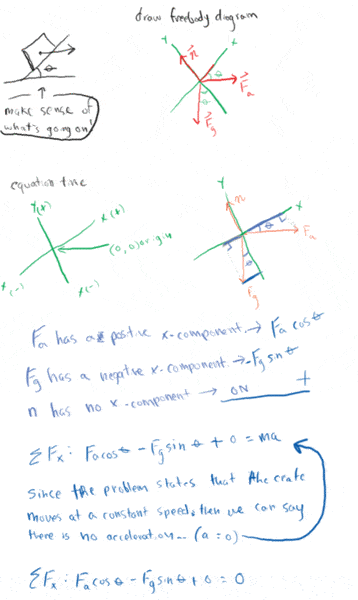 draw freebody diagram
θ
make sense of
what's going on!
y
x
n
θ
Fa
θ
Fg
equation time
y(+)
x(+)
(0,0) origin
x(-)
y(-)
y
n
x
θ
Fa
θ
Fg
Fa has a positive x-component → Fa cos θ
Fg has a negative x-component → -Fg sin θ
n has no x-component → 0N +
ΣFx: Fa cos θ - Fg sin θ + 0 = ma
Since the problem states that the crate
moves at a constant speed, then we can say
there is no acceleration... (a = 0)
ΣFx: Fa cos θ - Fg sin θ + 0 = 0